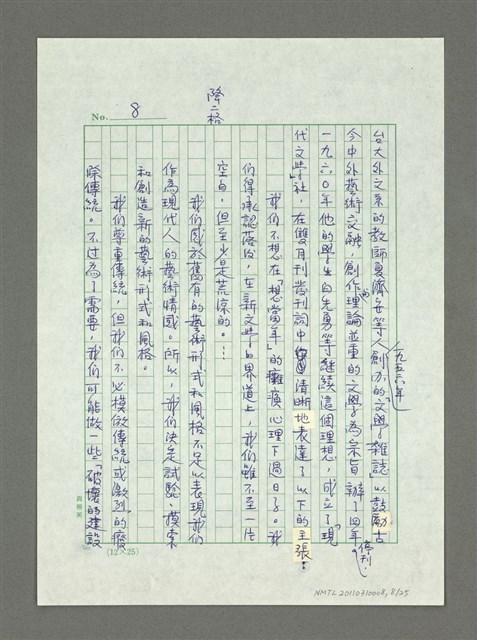 No. 8
降二格
台大外文系的教師夏濟安等人一九五六年創办的「文學雜誌」以鼓勵古
今中外藝術交融,創作與理論並重的文學為宗旨,辦了四年停刊;
一九六〇年他的學生白先勇等繼續這個理想,成立了「現
代文學」社,在雙月刊發刊詞中清晰地表達了以下的主張:
我們不想在「想當年」的癱瘓心理下過日子。我
們得承認落後,在新文學的界道上,我們雖不至一片
空白,但至少是荒涼的。…
我們感於舊有的藝術形式和風格不足以表現我們
作為現代人的藝術情感。所以,我們決定試驗、摸索
和創造新的藝術形式和風格。
我們尊重傳統,但我們不必模倣傳統或激烈的廢
除傳統。不过為了需要,我們可能做一些「破壞的建設
(12×25)
NMTL20110310008, 8/25